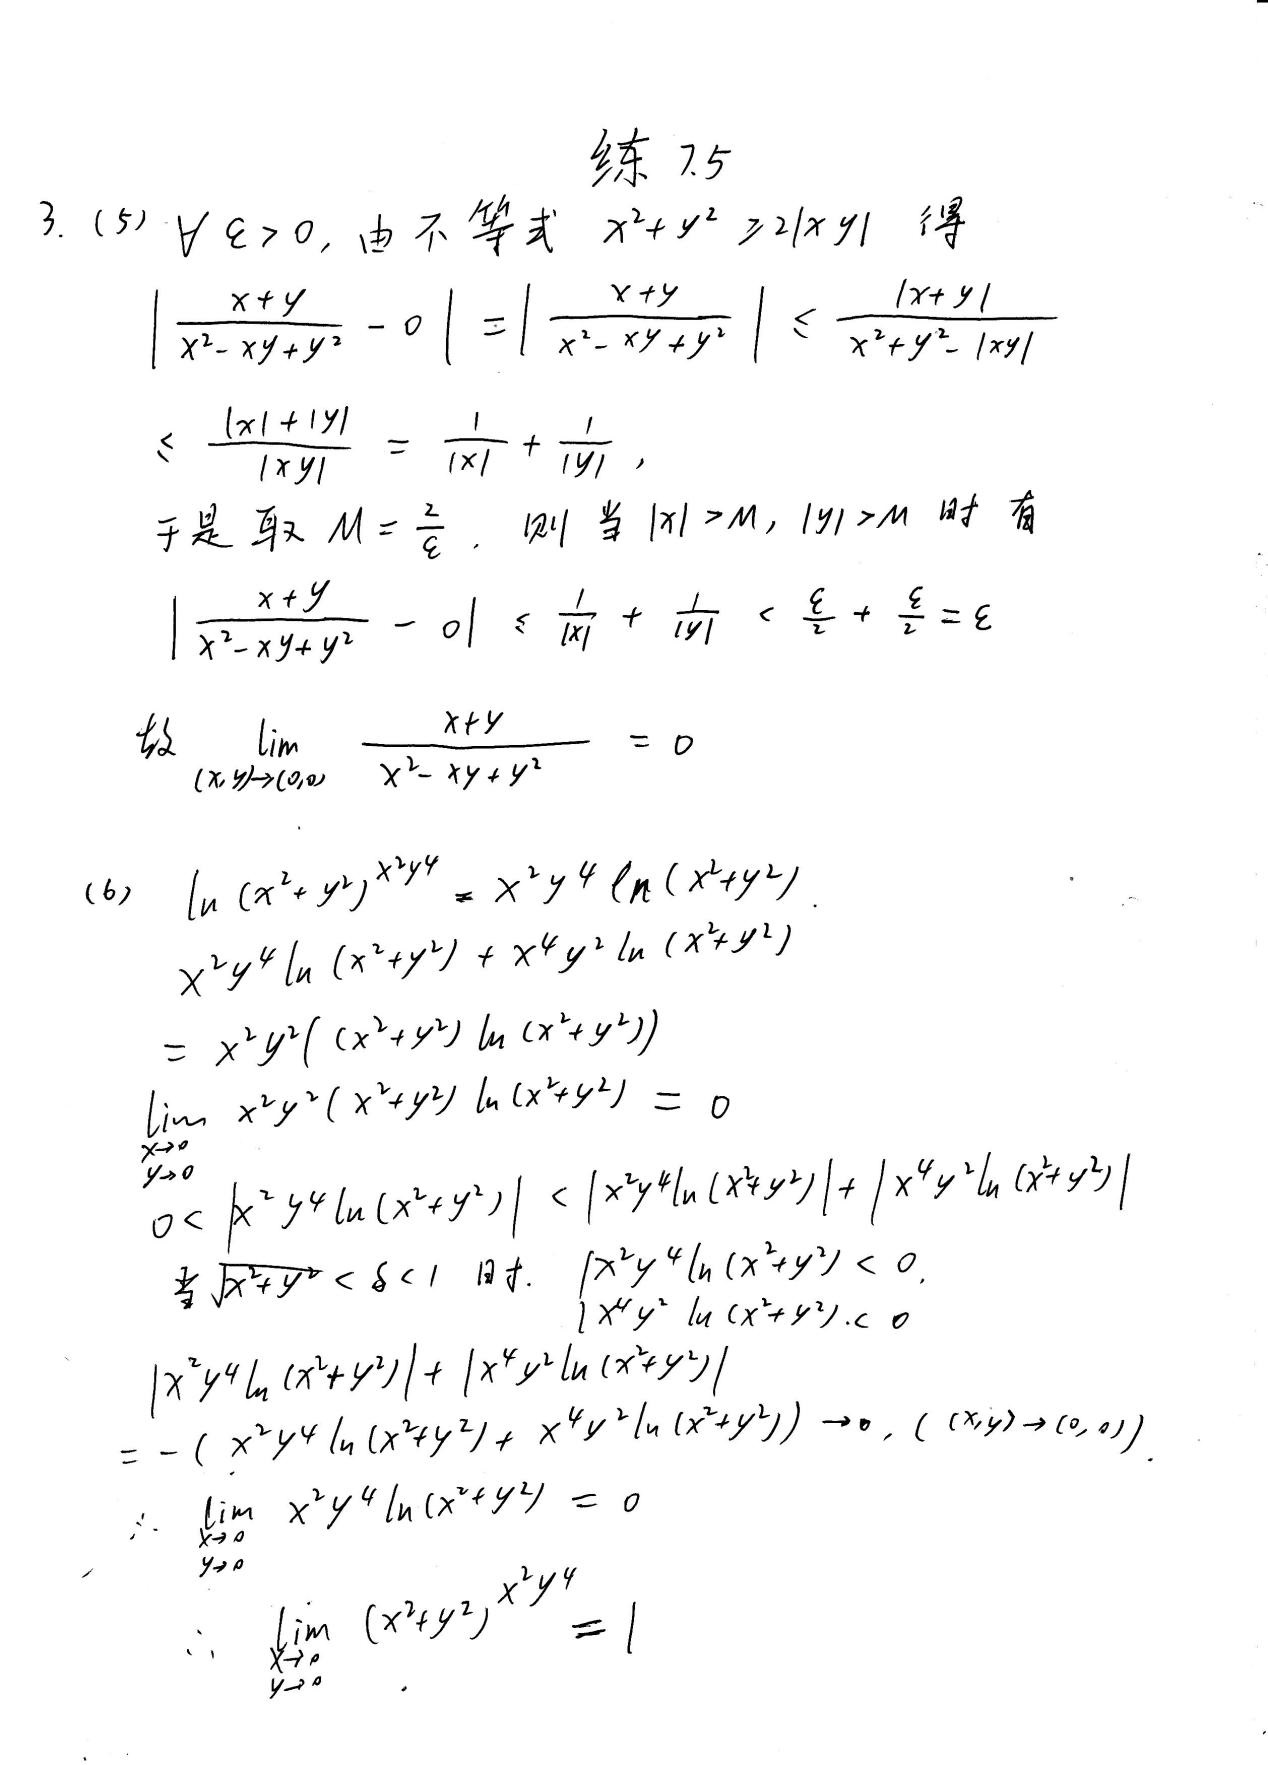 练 7.5
3. (5) ∀ ε>0, 由不等式 x²+y² ≥2|xy| 得
| (x+y)/(x²-xy+y²) - 0 | = | (x+y)/(x²-xy+y²) | ≤ |x+y|/(x²+y²-|xy|)
≤ (|x|+|y|)/|xy| = 1/|x| + 1/|y| ,
于是取 M = 2/ε . 则当 |x|>M, |y|>M 时有
| (x+y)/(x²-xy+y²) - 0| ≤ 1/|x| + 1/|y| < ε/2 + ε/2 = ε
故 lim (x,y)→(0,0) (x+y)/(x²-xy+y²) = 0
(6) ln (x²+y²)^(x²y⁴) = x²y⁴ ln (x²+y²).
x²y⁴ ln (x²+y²) + x⁴y² ln (x²+y²)
= x²y²( (x²+y²) ln (x²+y²))
lim x→0 y→0 x²y²(x²+y²) ln (x²+y²) = 0
0< |x²y⁴ ln (x²+y²)| < |x²y⁴ ln (x²+y²)| + |x⁴y² ln (x²+y²)|
当 √(x²+y²) < δ < 1 时. { x²y⁴ ln (x²+y²) < 0.
x⁴y² ln (x²+y²) . < 0
|x²y⁴ ln (x²+y²)| + |x⁴y² ln (x²+y²)|
= - ( x²y⁴ ln (x²+y²) + x⁴y² ln (x²+y²)) → 0, ( (x,y)→(0,0)).
∴ lim x→0 y→0 x²y⁴ ln (x²+y²) = 0
∴ lim x→0 y→0 (x²+y²)^(x²y⁴) = 1